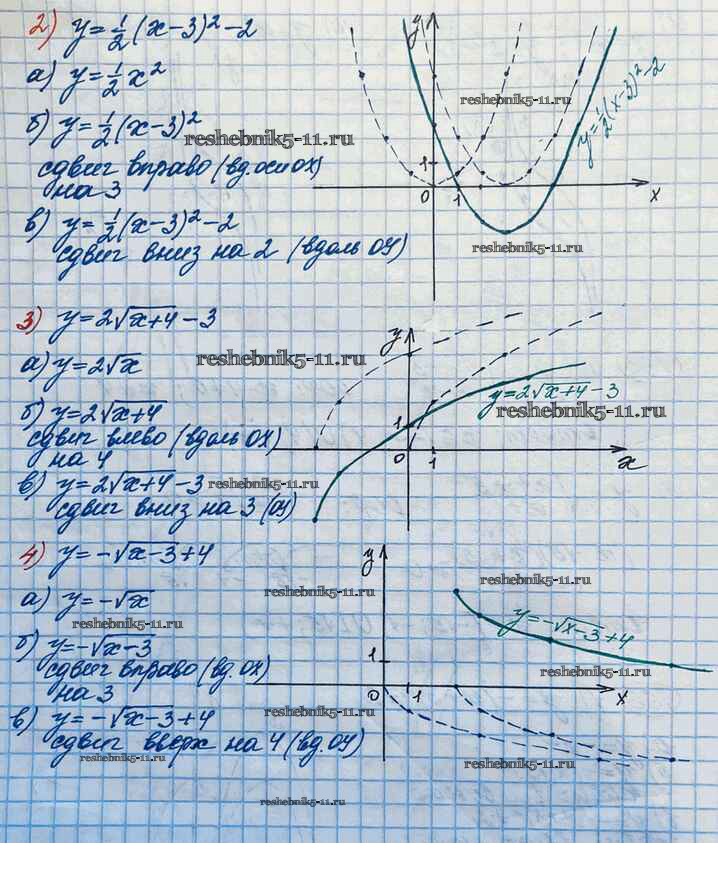 2) y=½(x-3)²-2
а) y=½x²
б) y=½(x-3)²
сдвиг вправо (вд.оси ох)
на 3
в) y=½(x-3)²-2
сдвиг вниз на 2 (вдоль ОУ)
y
1
0
1
x
y=½(x-3)²-2
reshebnik5-11.ru
reshebnik5-11.ru
reshebnik5-11.ru
3) y=2√x+4-3
а) y=2√x
б) y=2√x+4
сдвиг влево (вдоль ОХ)
на 4
в) y=2√x+4-3
сдвиг вниз на 3 (ОУ)
y
1
0
1
x
y=2√x+4-3
reshebnik5-11.ru
reshebnik5-11.ru
reshebnik5-11.ru
4) y=-√x-3+4
а) y=-√x
б) y=-√x-3
сдвиг вправо (вд.ОХ)
на 3
в) y=-√x-3+4
сдвиг вверх на 4 (вд.ОУ)
y
1
0
1
x
y=-√x-3+4
reshebnik5-11.ru
reshebnik5-11.ru
reshebnik5-11.ru
reshebnik5-11.ru
reshebnik5-11.ru
reshebnik5-11.ru
reshebnik5-11.ru
reshebnik5-11.ru